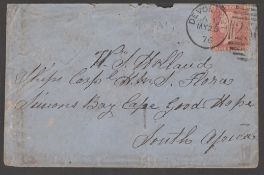 DEVON
MY 25
76
W. J. Holland
Ships Corpl H.M.S. Flora
Simons Bay Cape Good Hope
South Africa